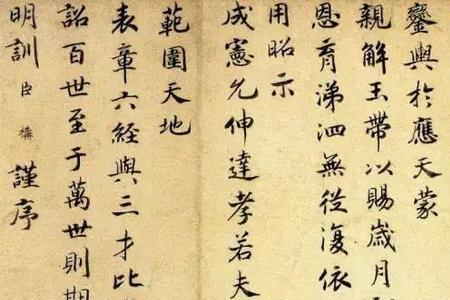 鑾輿於應天蒙
親解玉帶以賜歳月
恩育涕泗無從復依
用昭示
成憲允伸達孝若夫
範圍天地
表章六經與三才比
詔百世至于萬世則期
明訓臣構謹序